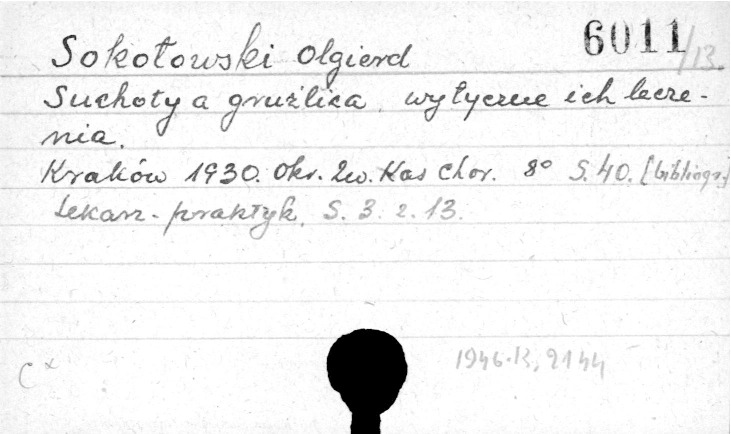 Sokołowski Olgierd 6011/13.
Suchoty a gruźlica, wytyczne ich lecze-
nia.
Kraków 1930. Okr. Zw. Kas Chor. 8° S. 40. [bibliogr.]
Lekarz-praktyk, S. 3. z. 13.
1946.B, 2144
C x